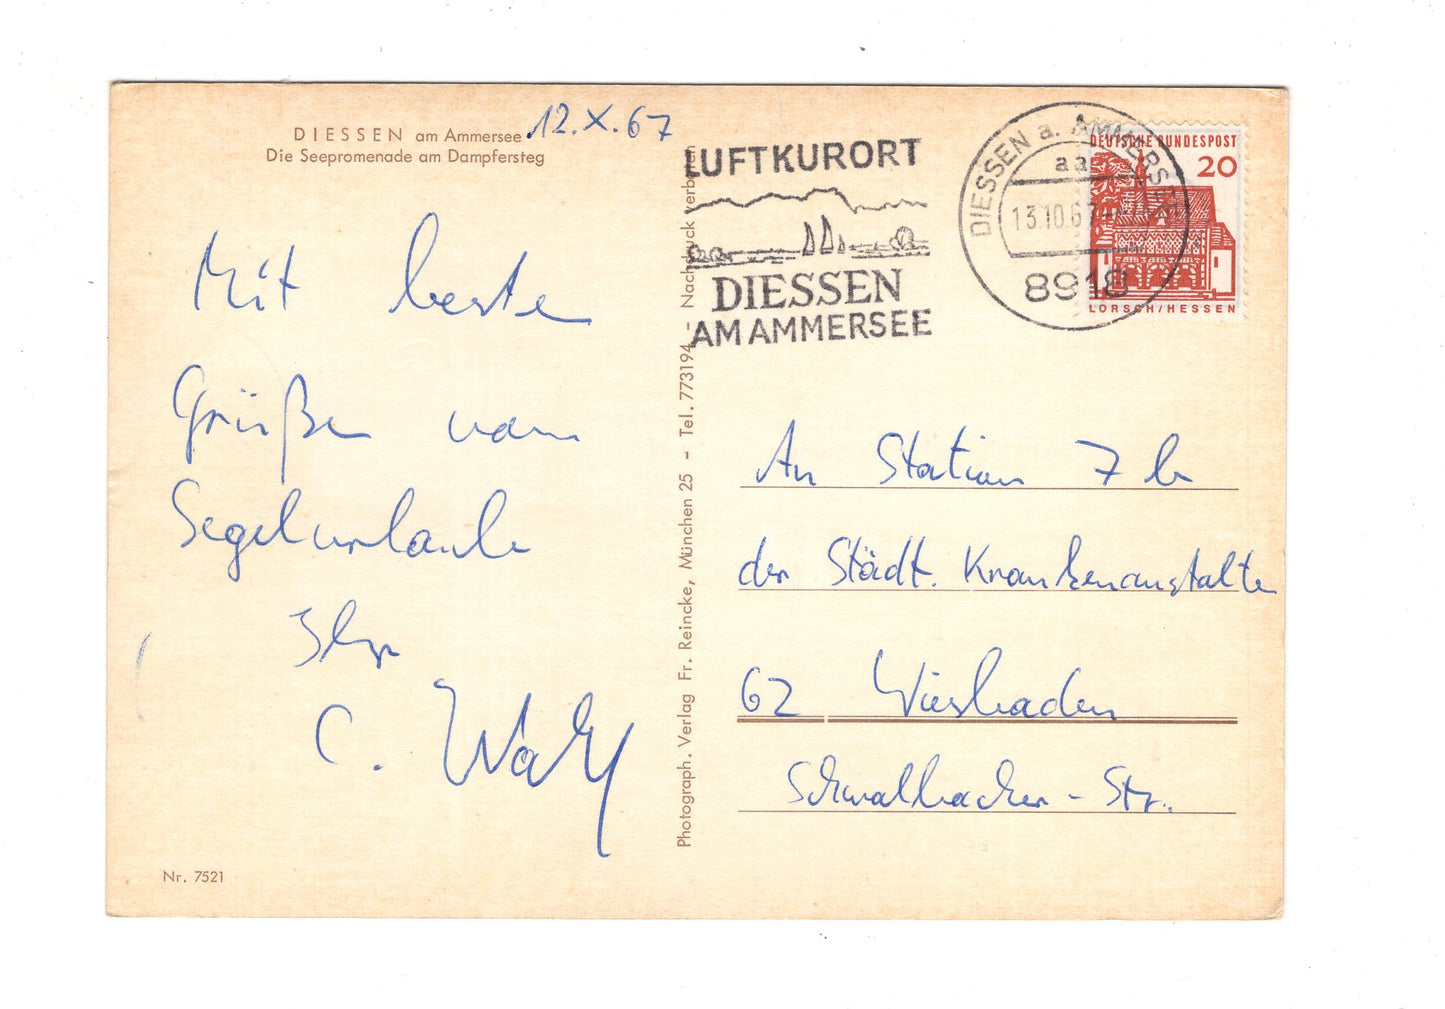 DIESSEN am Ammersee
Die Seepromenade am Dampfersteg
12.X.67
Mit beste
Grüßen vom
Segelurlaub
Ihr
C. Wolf
Nr. 7521
Photograph. Verlag Fr. Reincke, München 25 - Tel. 773194 - Nachdruck verboten
LUFTKURORT
DIESSEN
AM AMMERSEE
DIESSEN a. AMMERSEE
aa
13.10.67
8918
DEUTSCHE BUNDESPOST
20
LORSCH/HESSEN
An Station 7b
der Städt. Krankenanstalten
62 Wiesbaden
Schwalbacher-Str.